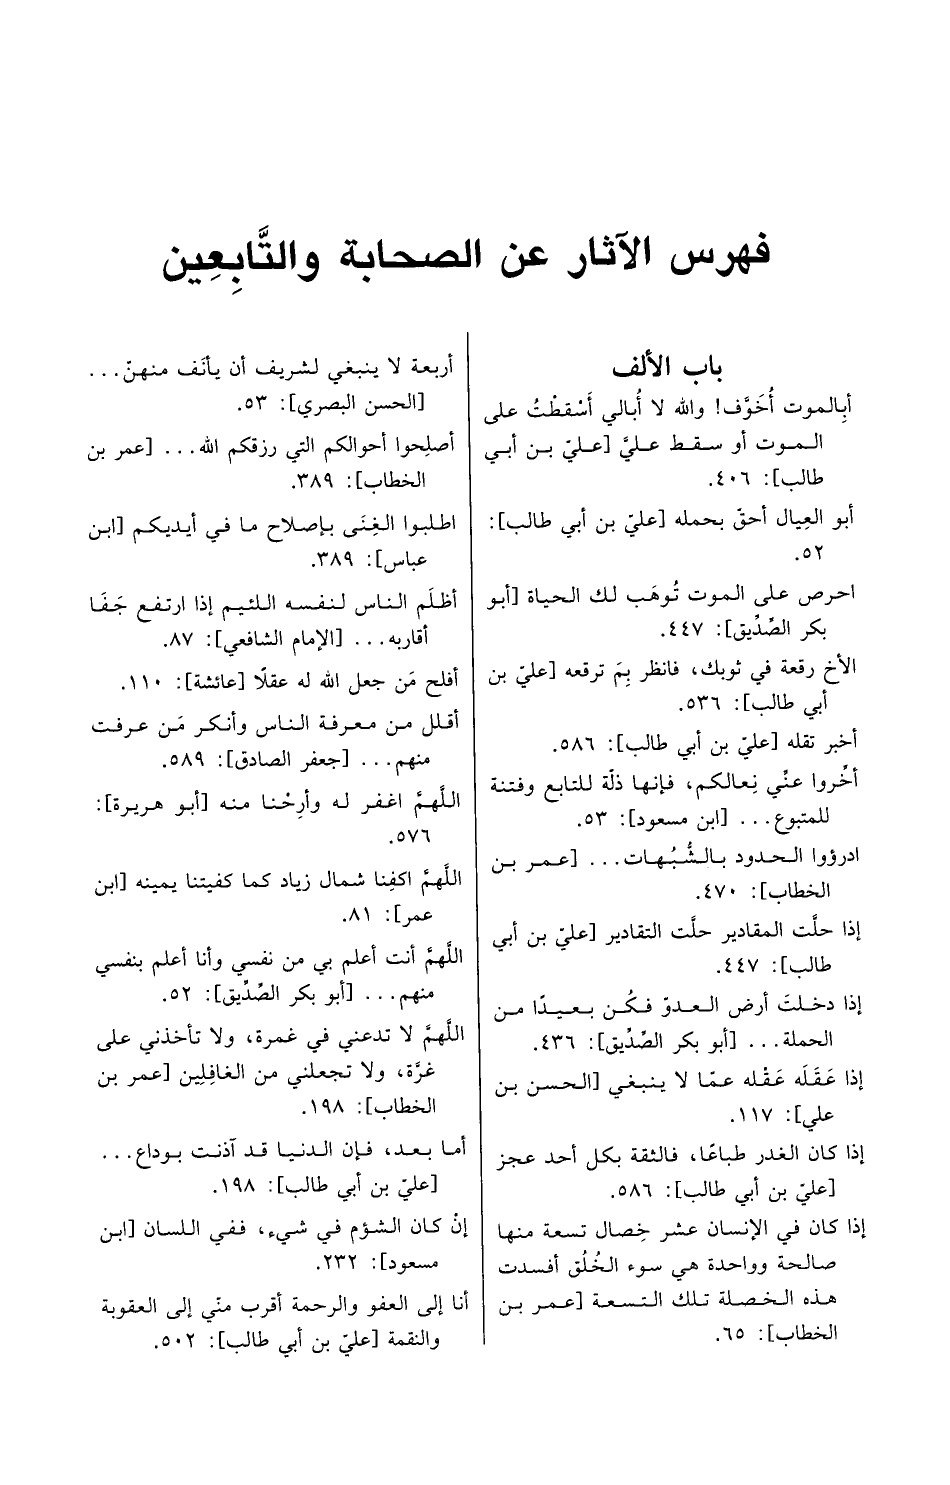 فهرس الآثار عن الصحابة والتَّابِعِين
باب الألف
أبِالموت أُخَوَّف! والله لا أُبالي أَسْقطْتُ على
الموت أو سقط عليَّ [عليّ بن أبي
طالب]: ٤٠٦.
أبو العِيال أحقّ بحمله [عليّ بن أبي طالب]:
٥٢.
احرص على الموت تُوهَب لك الحياة [أبو
بكر الصِّدِّيق]: ٤٤٧.
الأخ رقعة في ثوبك، فانظر بِمَ ترقعه [عليّ بن
أبي طالب]: ٥٣٦.
أخبر تقله [عليّ بن أبي طالب]: ٥٨٦.
أخِّروا عنِّي نِعالكم، فإنها ذلّة للتابع وفتنة
للمتبوع... [ابن مسعود]: ٥٣.
ادرؤوا الحدود بالشُّبُهات... [عمر بن
الخطاب]: ٤٧٠.
إذا حلَّت المقادير حلَّت التقادير [عليّ بن أبي
طالب]: ٤٤٧.
إذا دخلتَ أرض العدوّ فكُن بعيدًا من
الحملة... [أبو بكر الصِّدِّيق]: ٤٣٦.
إذا عَقَلَه عَقْله عمّا لا ينبغي [الحسن بن
علي]: ١١٧.
إذا كان الغدر طباعًا، فالثقة بكل أحد عجز
[عليّ بن أبي طالب]: ٥٨٦.
إذا كان في الإنسان عشر خِصال تسعة منها
صالحة وواحدة هي سوء الخُلُق أفسدت
هذه الخصلة تلك التسعة [عمر بن
الخطاب]: ٦٥.
أربعة لا ينبغي لشريف أن يأنَف منهنّ...
[الحسن البصري]: ٥٣.
أصلِحوا أحوالكم التي رزقكم الله... [عمر بن
الخطاب]: ٣٨٩.
اطلبوا الغِنَى بإصلاح ما في أيديكم [ابن
عباس]: ٣٨٩.
أظلَم الناس لنفسه اللئيم إذا ارتفع جَفَا
أقاربه... [الإمام الشافعي]: ٨٧.
أفلح مَن جعل الله له عقلًا [عائشة]: ١١٠.
أقلل من معرفة الناس وأنكر مَن عرفت
منهم... [جعفر الصادق]: ٥٨٩.
اللَّهمَّ اغفر له وأرِحْنا منه [أبو هريرة]:
٥٧٦.
اللَّهمَّ اكفِنا شمال زياد كما كفيتنا يمينه [ابن
عمر]: ٨١.
اللَّهمَّ أنت أعلم بي من نفسي وأنا أعلم بنفسي
منهم... [أبو بكر الصِّدِّيق]: ٥٢.
اللَّهمَّ لا تدعني في غمرة، ولا تأخذني على
غرَّة، ولا تجعلني من الغافِلِين [عمر بن
الخطاب]: ١٩٨.
أما بعد، فإن الدنيا قد آذنت بوداع...
[عليّ بن أبي طالب]: ١٩٨.
إنْ كان الشؤم في شيء، ففي اللسان [ابن
مسعود]: ٢٣٢.
أنا إلى العفو والرحمة أقرب منّي إلى العقوبة
والنقمة [عليّ بن أبي طالب]: ٥٠٢.